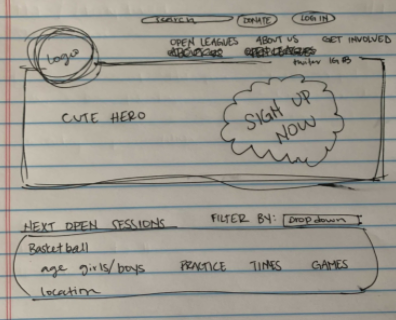 search DONATE LOG IN
OPEN LEAGUES ABOUT US GET INVOLVED
Logo
twitter IG FB
CUTE HERO
SIGN UP
NOW
NEXT OPEN SESSIONS FILTER BY: Drop down
Basketball
age girls/boys PRACTICE TIMES GAMES
location